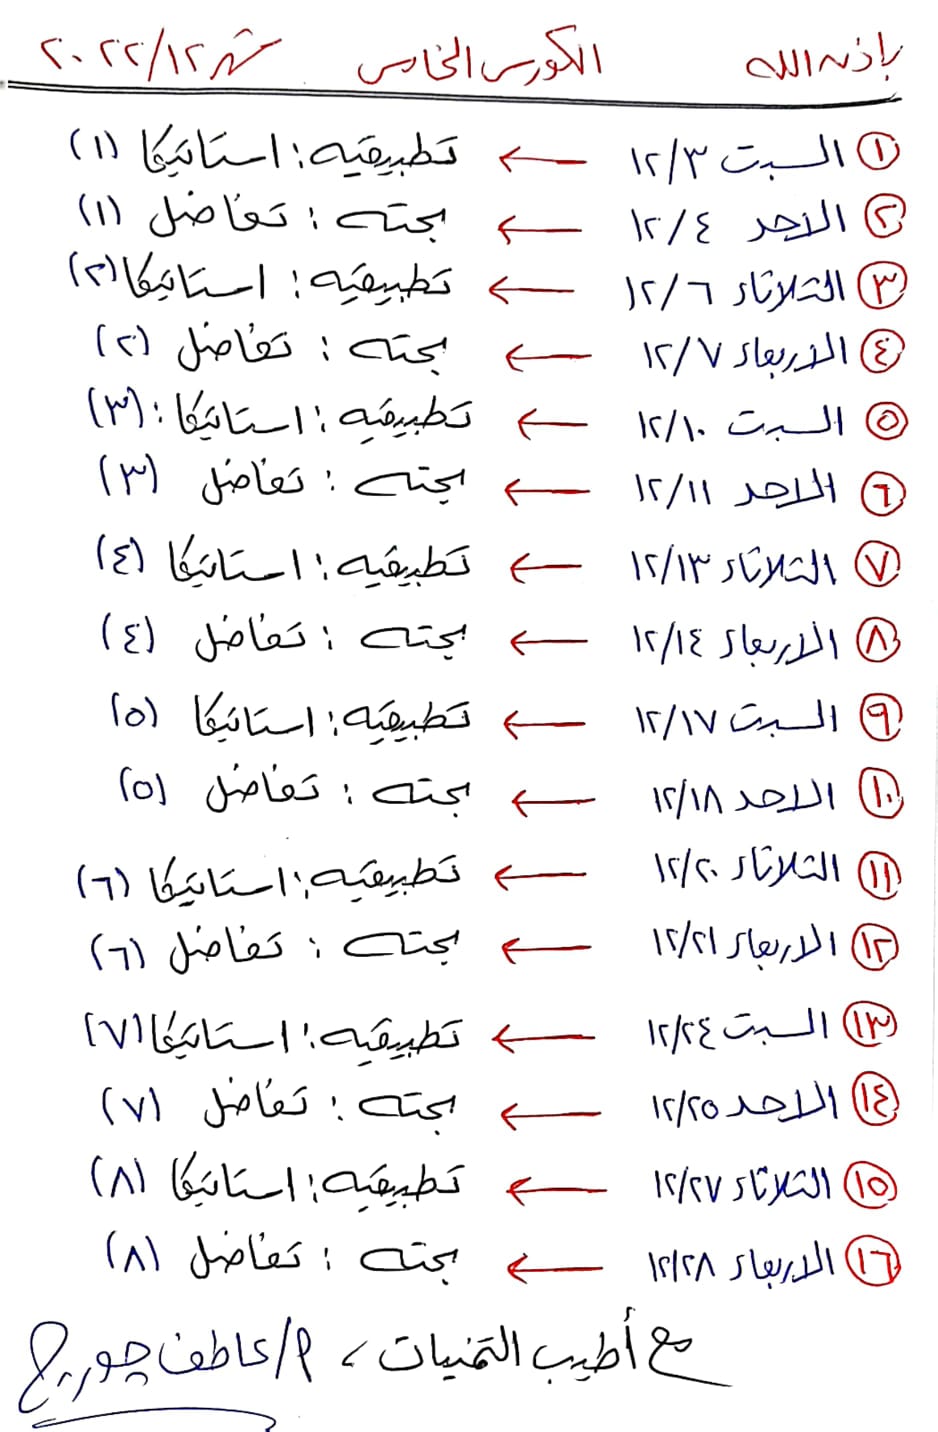 بإذن الله الكورس الخامس شهر ٢٠٢٢/١٢
١ السبت ١٢/٣ ← تطبيقيه : استاتيكا (١)
٢ الاحد ١٢/٤ ← بحته : تفاضل (١)
٣ الثلاثاء ١٢/٦ ← تطبيقيه : استاتيكا (٢)
٤ الاربعاء ١٢/٧ ← بحته : تفاضل (٢)
٥ السبت ١٢/١٠ ← تطبيقيه : استاتيكا : (٣)
٦ الاحد ١٢/١١ ← بحته : تفاضل (٣)
٧ الثلاثاء ١٢/١٣ ← تطبيقيه : استاتيكا (٤)
٨ الاربعاء ١٢/١٤ ← بحته : تفاضل (٤)
٩ السبت ١٢/١٧ ← تطبيقيه : استاتيكا (٥)
١٠ الاحد ١٢/١٨ ← بحته : تفاضل (٥)
١١ الثلاثاء ١٢/٢٠ ← تطبيقيه : استاتيكا (٦)
١٢ الاربعاء ١٢/٢١ ← بحته : تفاضل (٦)
١٣ السبت ١٢/٢٤ ← تطبيقيه : استاتيكا (٧)
١٤ الاحد ١٢/٢٥ ← بحته : تفاضل (٧)
١٥ الثلاثاء ١٢/٢٧ ← تطبيقيه : استاتيكا (٨)
١٦ الاربعاء ١٢/٢٨ ← بحته : تفاضل (٨)
مع أطيب التمنيات ، م/عاطف جورج